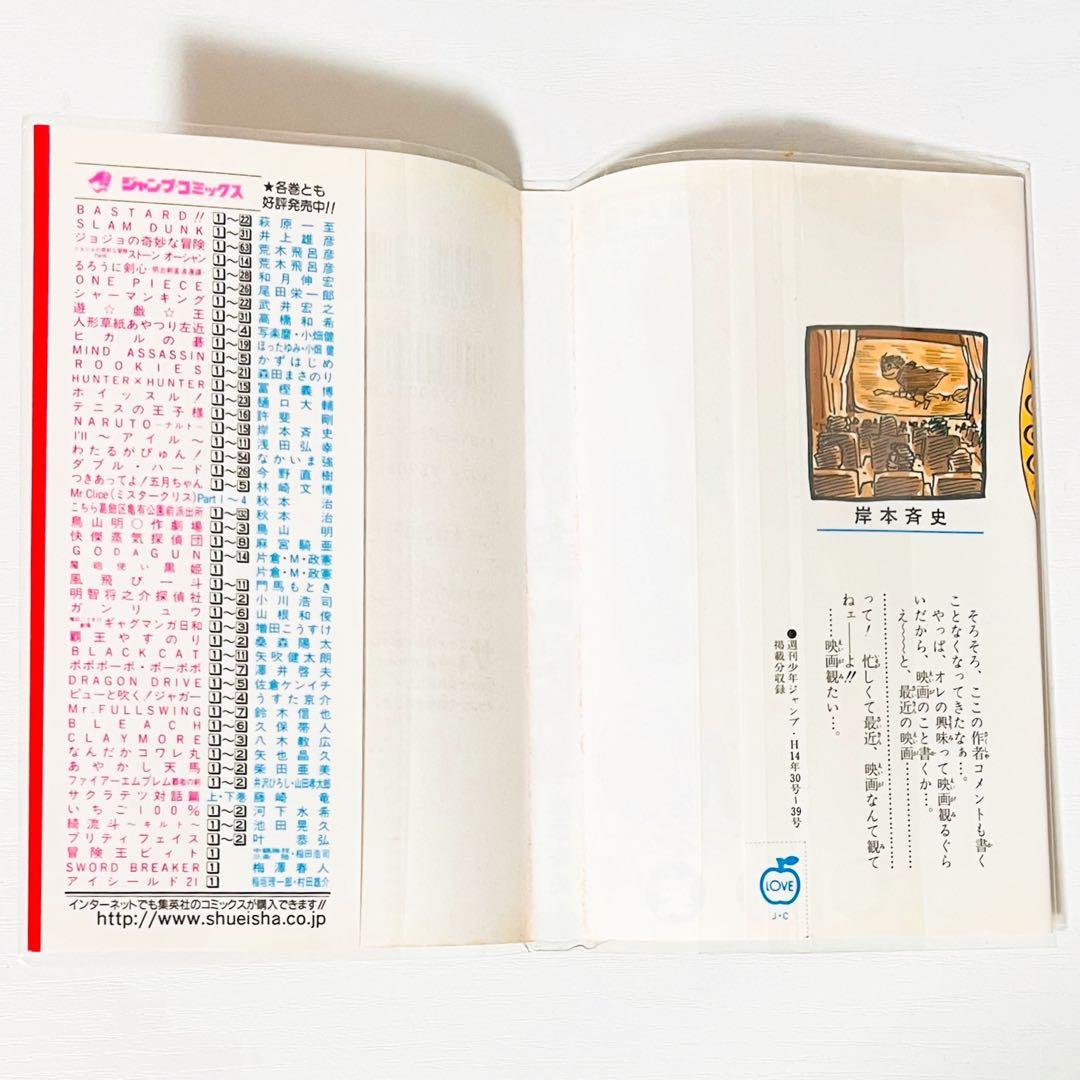 ジャンプ・コミックス
★各巻とも
好評発売中!!
BASTARD!! 1〜22 萩原一至
SLAM DUNK 1〜31 井上雄彦
ジョジョの奇妙な冒険 1〜63 荒木飛呂彦
ストーン オーシャン 1〜14 荒木飛呂彦
るろうに剣心・明治剣客浪漫譚・ 1〜28 和月伸宏
ONE PIECE 1〜26 尾田栄一郎
シャーマンキング 1〜22 武井宏之
遊☆戯☆王 1〜31 高橋和希
人形草紙あやつり左近 1〜4 写楽麿・小畑健
ヒカルの碁 1〜19 ほったゆみ・小畑健
MIND ASSASSIN 1〜5 かずはじめ
ROOKIES 1〜21 森田まさのり
HUNTER×HUNTER 1〜15 冨樫義博
ホイッスル! 1〜23 樋口大輔
テニスの王子様 1〜16 許斐剛
NARUTO―ナルト― 1〜15 岸本斉史
I'll〜アイル〜 1〜11 浅田弘幸
わたるがぴゅん! 1〜54 なかいま強
ダブル・ハード 1〜26 今野直樹
つきあってよ!五月ちゃん 1〜5 林崎文博
Mr.Clice(ミスタークリス) Part 1〜4 秋本治
こちら葛飾区亀有公園前派出所 1〜 秋本治
鳥山明○作劇場 1〜3 鳥山明
快傑蒸気探偵団 1〜8 麻宮騎亜
GODAGUN 1〜14 片倉・M・政憲
魔砲使い黒姫 1 片倉・M・政憲
風飛び一斗 1〜11 門馬もとき
明智将之介探偵社 1〜2 小川浩司
ガンリュウ 1〜6 山根和俊
ギャグマンガ日和 1〜3 増田こうすけ
覇王やすのり 1〜2 桑森陽太
BLACK CAT 1〜11 矢吹健太朗
ボボボーボ・ボーボボ 1〜7 澤井啓夫
DRAGON DRIVE 1〜5 佐倉ケンイチ
ピューと吹く!ジャガー 1〜4 うすた京介
Mr.FULLSWING 1〜7 鈴木信也
BLEACH 1〜6 久保帯人
CLAYMORE 1〜3 八木教広
なんだかコワレ丸 1〜2 矢也晶久
あやかし天馬 1〜2 柴田亜美
ファイアーエムブレム覇者の剣 1〜2 井沢ひろし・山田孝太郎
サクラテツ対話篇 上・下巻 藤崎竜
いちご100% 1〜2 河下水希
綺流斗〜キルト〜 1〜2 池田晃久
プリティフェイス 1〜2 叶恭弘
冒険王ビィト 1 三条陸・稲田浩司
SWORD BREAKER 1 梅澤春人
アイシールド21 1 稲垣理一郎・村田雄介
インターネットでも集英社のコミックスが購入できます!!
http://www.shueisha.co.jp
岸本斉史
そろそろ、ここの作者コメントも書く
ことなくなってきたなぁ…。
やっぱ、オレの興味って映画観るぐら
いだから、映画のこと書くか…。
え〜〜と、最近の映画………
……………………………
って!忙しくて最近、映画なんて観て
ねェ――よ!!
……映画観たい…。
●週刊少年ジャンプ・H14年30号〜39号
掲載分収録
LOVE
J・C